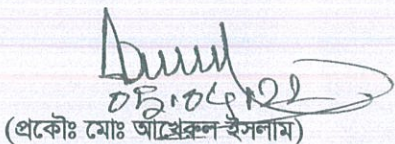 ০৫.০৪.২২
(প্রকৌঃ মোঃ আখেরুল ইসলাম)